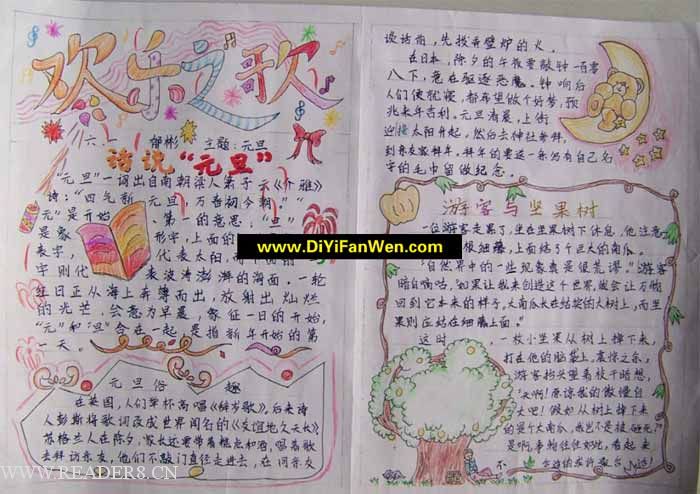 欢乐之歌
六.一 郁彬 主题:元旦
话说“元旦”
“元旦”一词出自南朝诗人萧子云《介雅》
诗:“四气新元旦,万寿初今朝。”“
元”是开始、第一的意思,“旦”
是象 形字,上面的
表字, 代表太阳,
字则代 表波涛澎湃的海面。一轮
红日正从海上奔薄而出,放射出灿烂
的光芒,会意为早晨,象征一日的开始,
“元”和“旦”合在一起,是指新年开始的第
一天。
元旦俗趣
在英国,人们举杯高唱《辞岁歌》,后来诗
人彭斯将歌词改成世界闻名的《友谊地久天长》
苏格兰人在除夕,家长还要带着糕点和酒,唱着歌
去拜访亲友,他们不敲门直径走进去,在同亲友
说话前,先拨弄壁炉的火。
在日本,除夕的午夜要敲钟一百零
八下,意在驱逐恶魔。钟响后
人们便就寝,都希望做个好梦,预
兆来年吉利。元旦清晨,上街
迎接太阳升起,然后去神社参拜,
到亲友家拜年。拜年的要送一条写有自己名
字的毛巾留做纪念。
游客与坚果树
一位游客走累了,坐在坚果树下休息,他注意
根细藤,上面结了个巨大的南瓜。
“自然界中的一些现象真是很荒谬。”游客
暗自嘀咕,“如果让我来创造这个世界,就会让万物
回到它本来的样子,大南瓜长在结实的大树上,而坚
果则应结在细藤上面。”
这时 一枚小坚果从树上掉下来,
打在他的脑袋上,震惊之余,
游客抬头望着枝干暗想,
“天啊!原谅我的傲慢自
大吧!假如从树上掉下来
的是个大南瓜,
是啊,事物往往如此,看起来
www.DiYiFanWen.com
WWW.READER8.CN